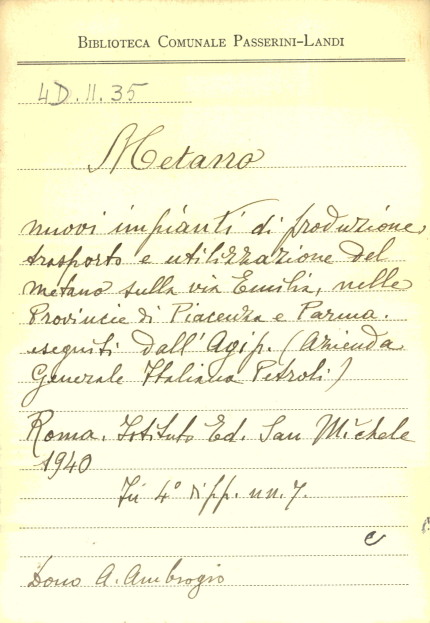 BIBLIOTECA COMUNALE PASSERINI-LANDI
4D.II.35
Metano
nuovi impianti di produzione,
trasporto e utilizzazione del
metano sulla via Emilia, nelle
Provincie di Piacenza e Parma.
eseguiti dall'Agip. (Azienda
Generale Italiana Petroli)
Roma. Istituto Ed. San Michele
1940
In 4° pp. nn. 7.
c
Dono A. Ambrogio